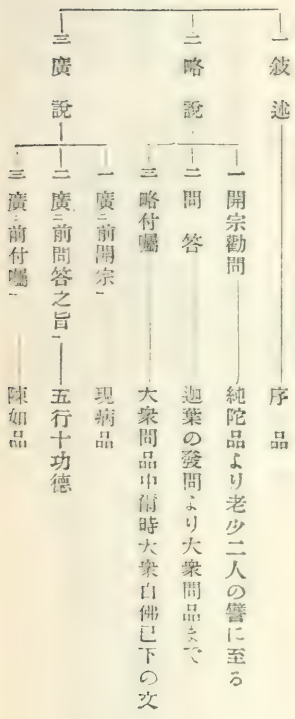 一敍述
序品
二略說
一開宗勸問
純陀品より老少二人の譬に至る
二問答
迦葉の發問より大衆問品まで
三略付囑
大衆問品中爾時大衆白佛已下の文
三廣說
一廣ニ前開宗一
現病品
二廣ニ前問答之旨一
五行十功德
三廣ニ前付囑一
陳如品